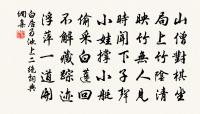 山僧對棋坐
局上竹陰清
映竹無人見
時聞下子聲
小娃撐小艇
偷采白蓮回
不解藏蹤迹
浮萍一道開
白居易池上二絕詞典
網集